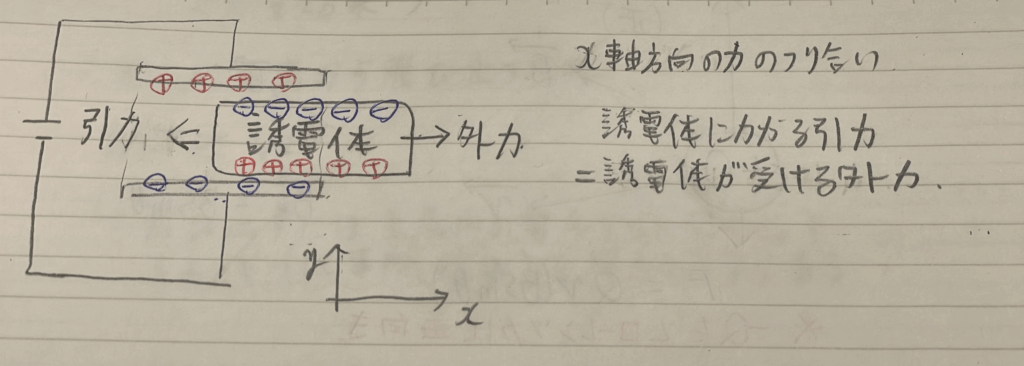 x軸方向の力のつり合い
引力
誘電体
外力
誘電体にかかる引力
=誘電体が受ける外力.
y
x